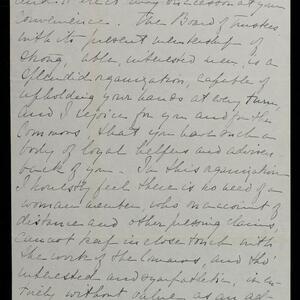 and to elect my successor at your
convenience. The Board of Trustees
with its present membership of
strong, able, interested men, is a
splendid organization, capable of
upholding your hands at every turn
and I rejoice for you and for the
Commons, that you have such a
body of loyal helpers and advisers
back of you. In this organization
I honestly feel there is no need of a
woman member who on account of
distance and other pressing claims,
cannot keep in close touch with
the work of the Commons, and tho'
interested and sympathetic, is en-
tirely without value as an ad-